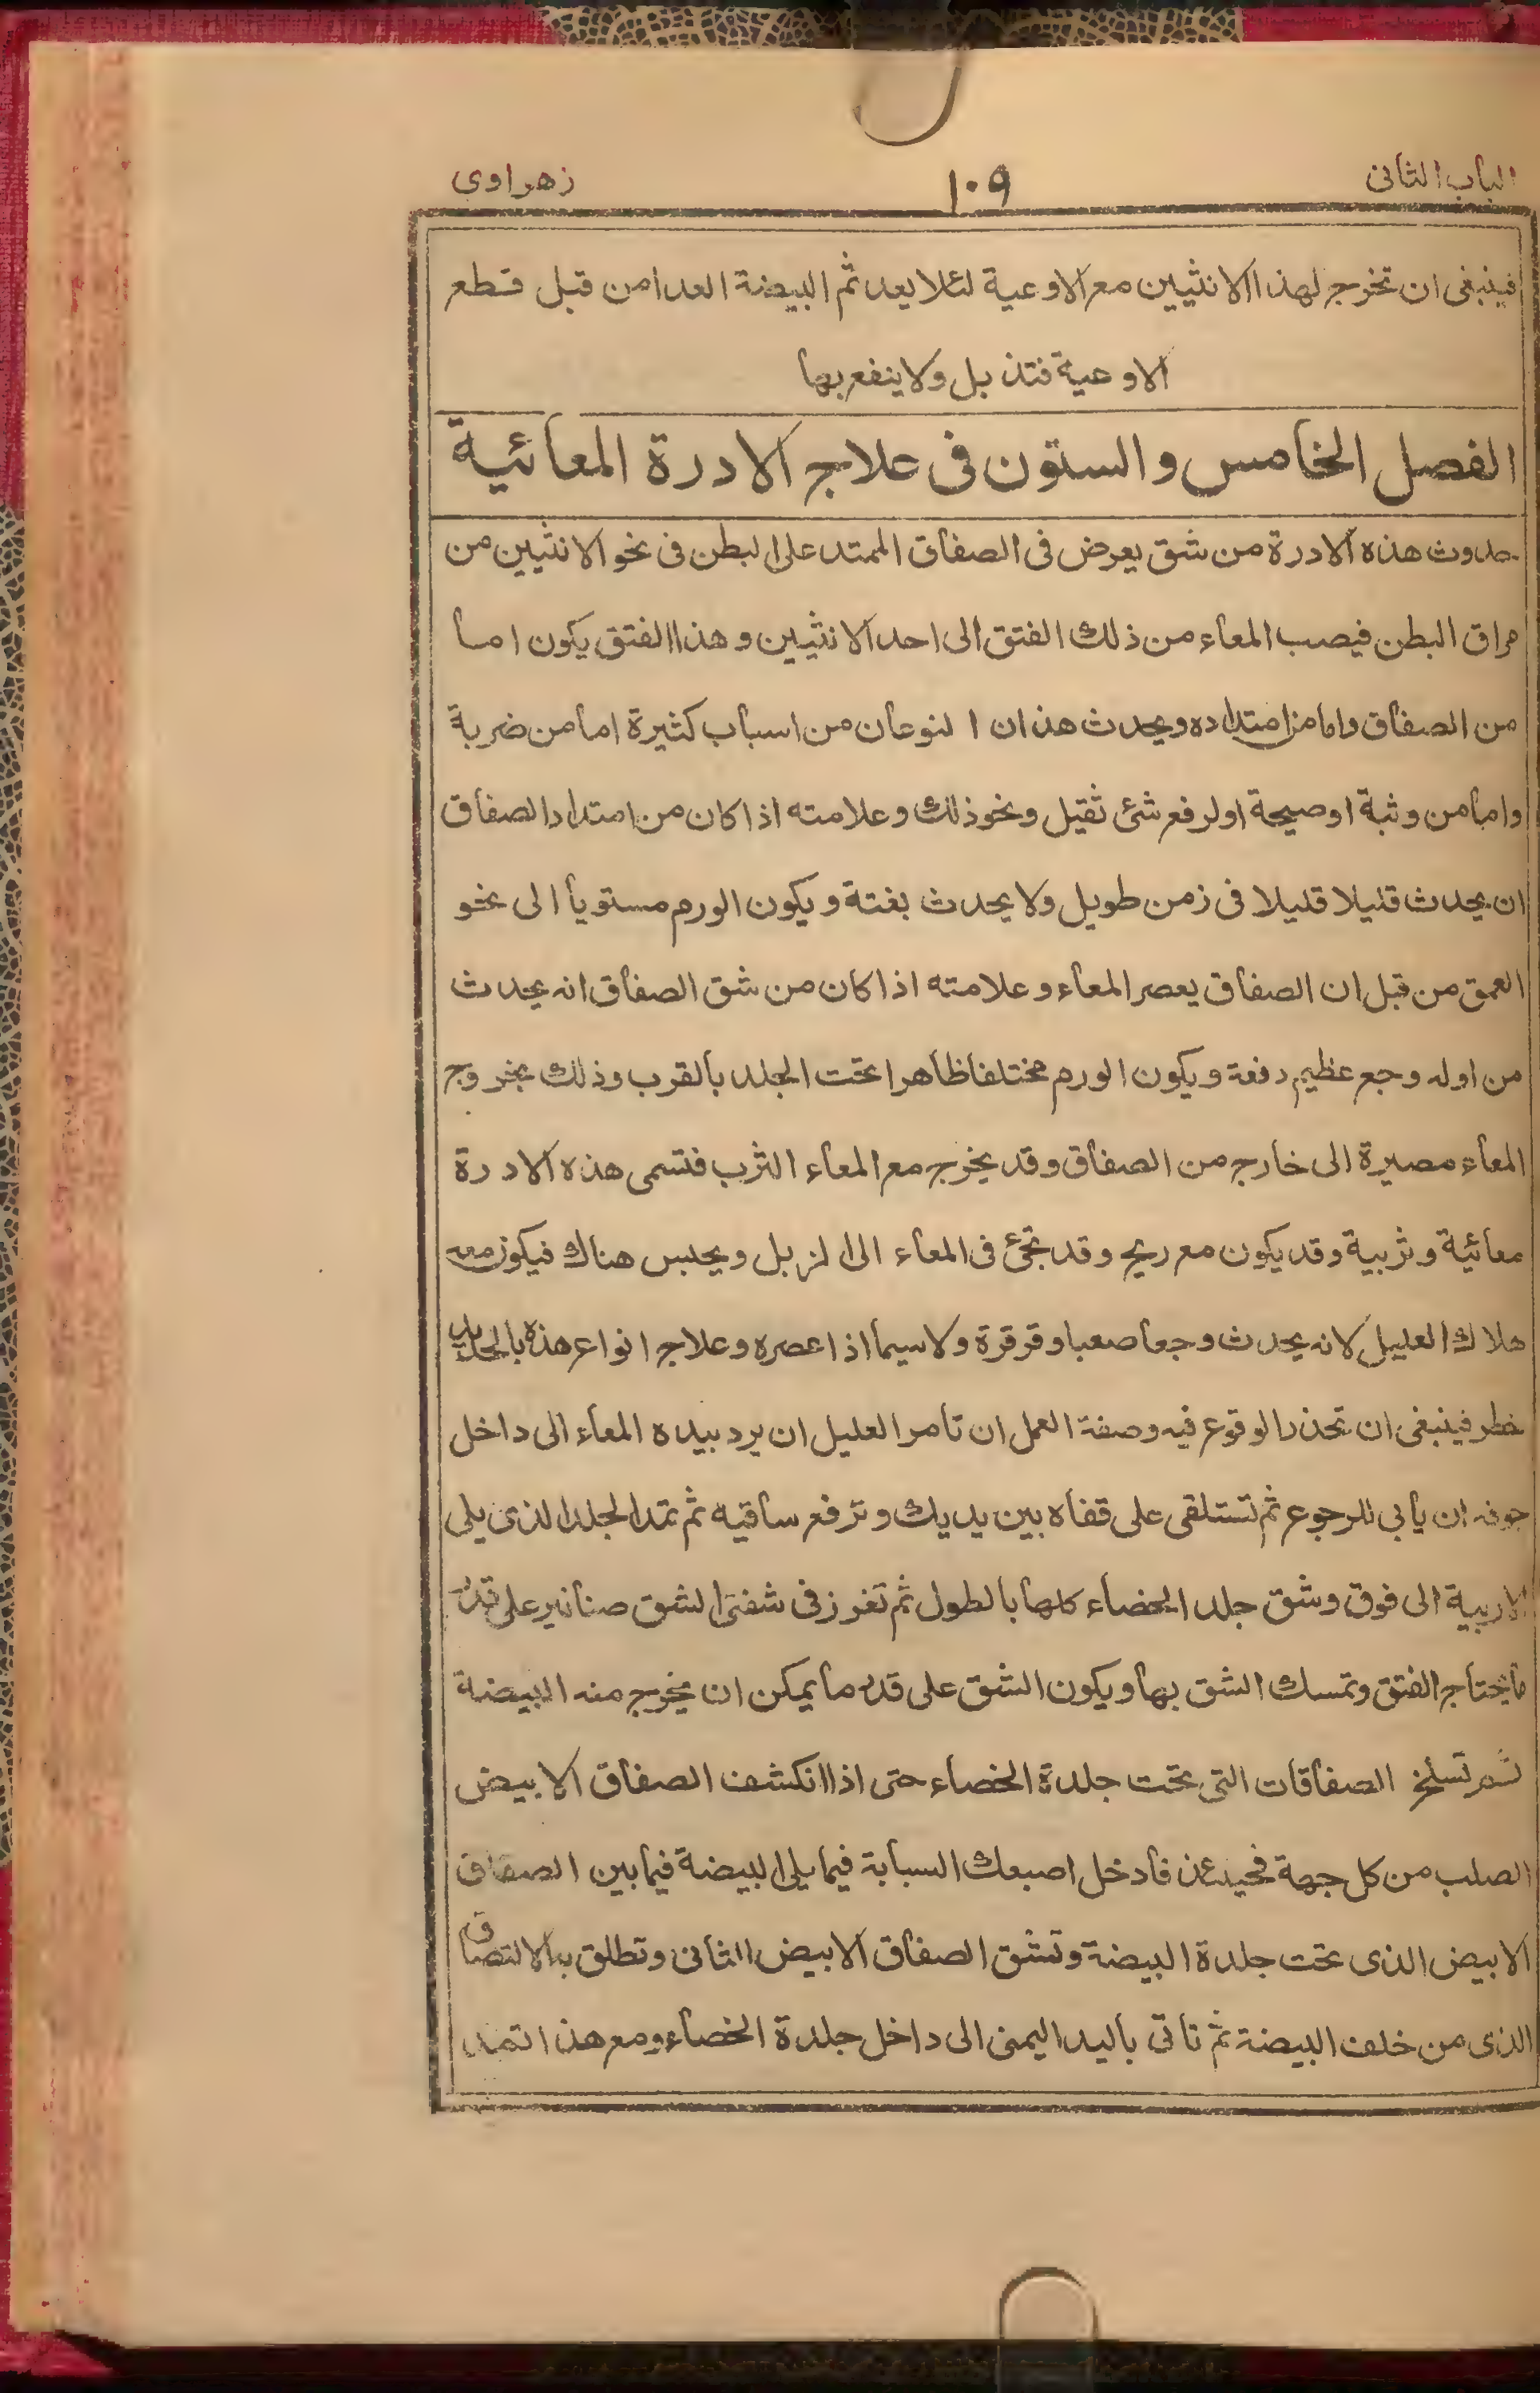 الباب الثانى ١٠٩ زهراوى
فينبغى ان تخرج لهذا الانثيين مع الاوعية لئلا يعد ثم البيضة العدا من قبل قطع
الاوعية فتذبل ولا ينفع بها
الفصل الخامس والستون فى علاج الادرة المعائية
حدوث هذه الادرة من شق يعرض فى الصفاق الممتد على البطن فى نحو الانثيين من
مراق البطن فيصب المعاء من ذلك الفتق الى احد الانثيين وهذا الفتق يكون اما
من الصفاق واما من امتداده ويحدث هذان النوعان من اسباب كثيرة اما من ضربة
واما من وثبة اوصيحة اولرفع شئ ثقيل ونحو ذلك وعلامته اذا كان من امتداد الصفاق
ان يحدث قليلا قليلا فى زمن طويل ولا يحدث بغتة ويكون الورم مستويا الى نحو
العمق من قبل ان الصفاق يعصر المعاء وعلامته اذا كان من شق الصفاق انه يحدث
من اوله وجع عظيم دفعة ويكون الورم مختلفا ظاهرا تحت الجلد بالقرب وذلك بخروج
المعاء مصيرة الى خارج من الصفاق وقد يخرج مع المعاء الثرب فتسمى هذه الادرة
معائية وثربية وقد يكون مع ريح وقد تجئ فى المعاء الى الزبل ويحبس هناك فيكون معه
هلاك العليل لانه يحدث وجعا صعبا وقرقرة ولا سيما اذا عصره وعلاج انواع هذه بالحديد
خطر فينبغى ان تحذر الوقوع فيه وصفة العمل ان تامر العليل ان يرد بيده المعاء الى داخل
جوفه ان يأبى للرجوع ثم تستلقى على قفاه بين يديك وترفع ساقيه ثم تمد الجلد الذى يلى
الاربية الى فوق وشق جلد الخصاء كلها بالطول ثم تغرز فى شفتى الشق صنانير على قدر
ما يحتاج الفتق وتمسك الشق بها ويكون الشق على قدر ما يمكن ان يخرج منه البيضة
ثم تسلخ الصفاقات التى تحت جلدة الخصاء حتى اذا انكشف الصفاق الابيض
الصلب من كل جهة فحينئذ فادخل اصبعك السبابة فيما يلى البيضة فيما بين الصفاق
الابيض الذى تحت جلدة البيضة وتشق الصفاق الابيض الثانى وتطلق به الالتصاق
الذى من خلف البيضة ثم تاتى باليد اليمنى الى داخل جلدة الخصاء ومع هذا تمد